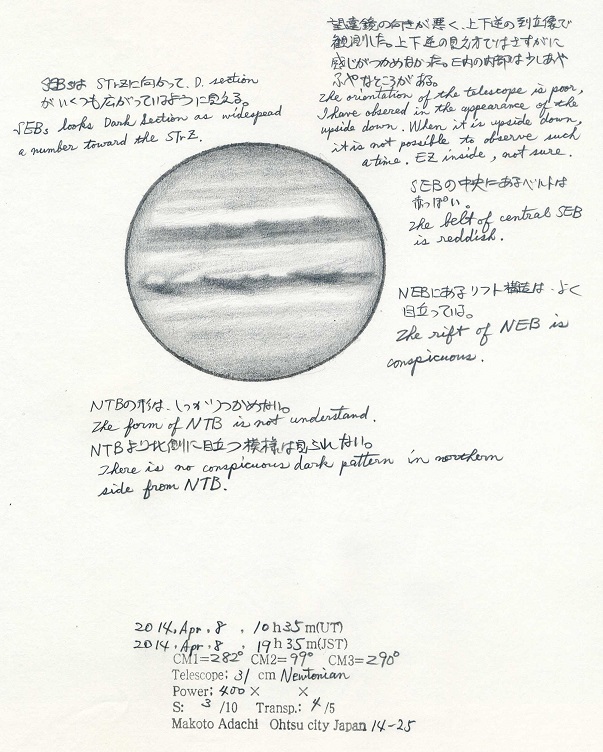 望遠鏡の向きが悪く、上下逆の倒立像で
観測した。上下逆の見え方ではさすがに
感じがつかめなかった。EZ内の内部は少しあや
ふやなところがある。
The orientation of the telescope is poor,
I have obsered in the appearance of the
upside down. When it is upside down,
it is not possible to observe such
a time. EZ inside, not sure.
SEBsは STrZに向かって、D. section
がいくつも広がっているように見える。
SEBs looks Dark Section as widespead
a number toward the STrZ.
SEBの中央にあるベルトは
赤っぽい。
The belt of central SEB
is reddish.
NEBにあるリフト構造は、よく
目立っている。
The rift of NEB is
conspicuous.
NTBの形は、しっかりつかめない。
The form of NTB is not understand.
NTBより北側に目立つ模様は見られない。
There is no conspicuous dark pattern in northern
side from NTB.
2014, Apr, 8 , 10 h 35 m(UT)
2014, Apr, 8 , 19 h 35 m(JST)
CM1=282° CM2=99° CM3=290°
Telescope; 31 cm Newtonian
Power; 400 × ×
S: 3 /10 Transp.: 4 /5
Makoto Adachi Ohtsu city Japan 14-25